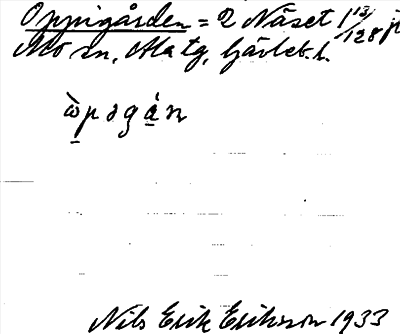 Oppigården = 2 Näset 1 13/128 j
Mo sn, Ala tg, Gävleb. l.
ὼpəgán
Nils Erik Eriksson 1933